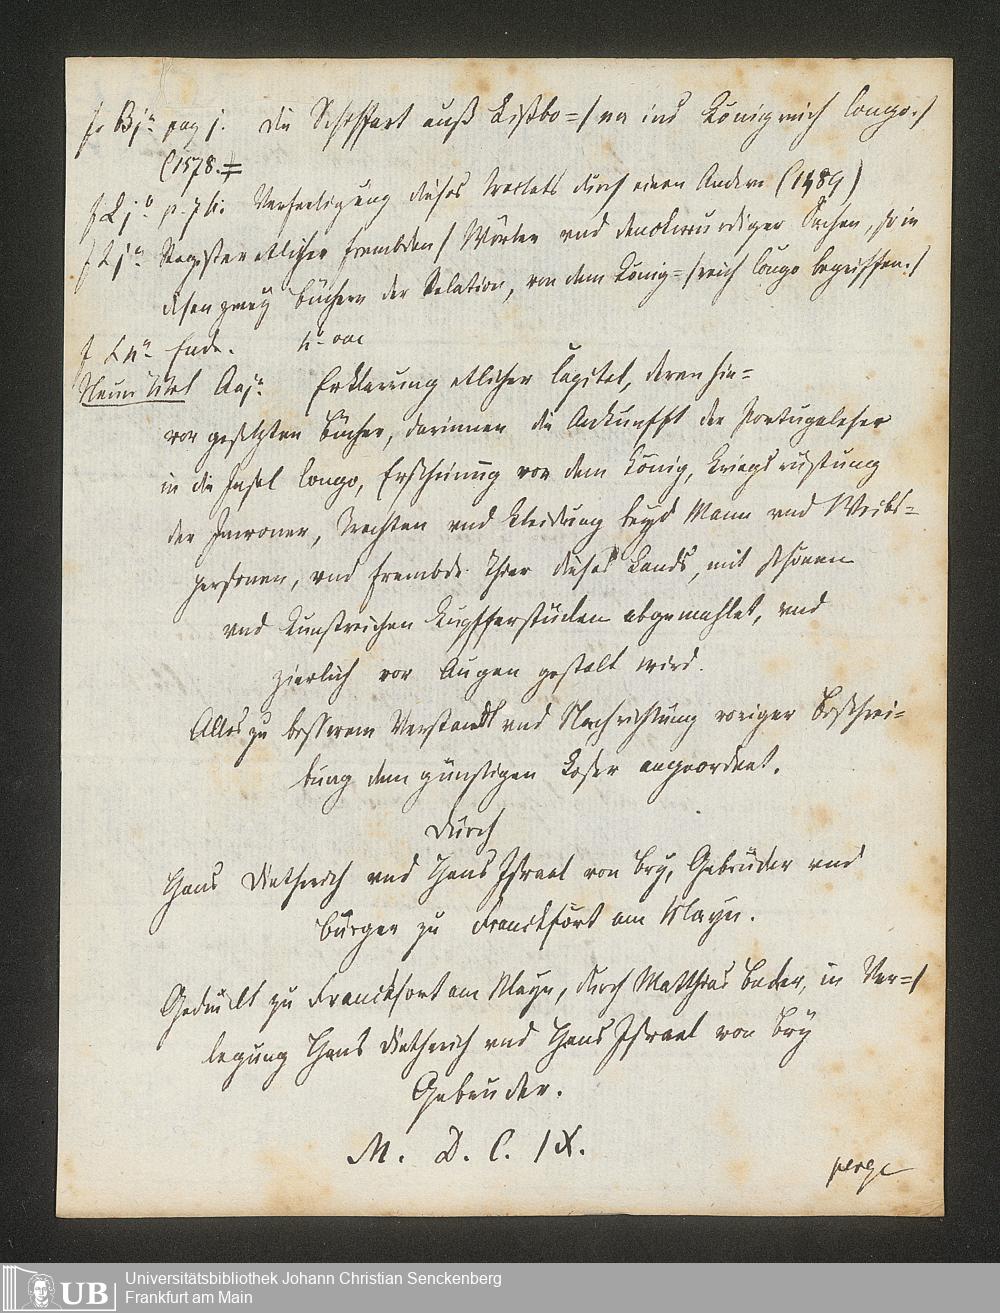 f. Bj.a pag j. Die Schiffart auß Lißbo=/na ins Königreich Congo./
(1578.
f Lj.b p. 74. Verfertigung dieses Tractats durch einen Andern (1489)
f Lj.a Register etlicher frembden/ Wörter vnd denckwürdiger Sachen, so in
disen zweÿ büchern der Relation, von dem König=/reich Congo begriffen./
f L Ende.
Neuer Titel Aaj.a Erklärung etlicher Capitel, deren hie=
vor gesetzten Bücher, darinnen die Ankunfft der Portugaleser
in die Insel Congo, Erscheinung vor dem König, Kriegsrüstung
der Inwoner, Trachten vnd Kleidung beÿd Mann vnd Weibs=
personen, vnd frembde Thier dieses Lands, mit schönen
vnd Kunstreichen Kupfferstücken abgemahlet, vnd
zierlich vor Augen gestelt wird.
Alles zu besserem Verstandt vnd Nachrichtung voriger Beschrei=
bung dem günstigen Leser angeordnet.
Durch
Hans Dietherich vnd Hans Israel von Bry, Gebrüder vnd
Bürger zu Franckfort am Mayn.
Gedruckt zu Franckfort am Mayn, durch Matthias Becker, in Ver=/
legung Hans Dietherich vnd Hans Israel von Brÿ
Gebruder.
M. D. C. IX.
perge
UB
Universitätsbibliothek Johann Christian Senckenberg
Frankfurt am Main